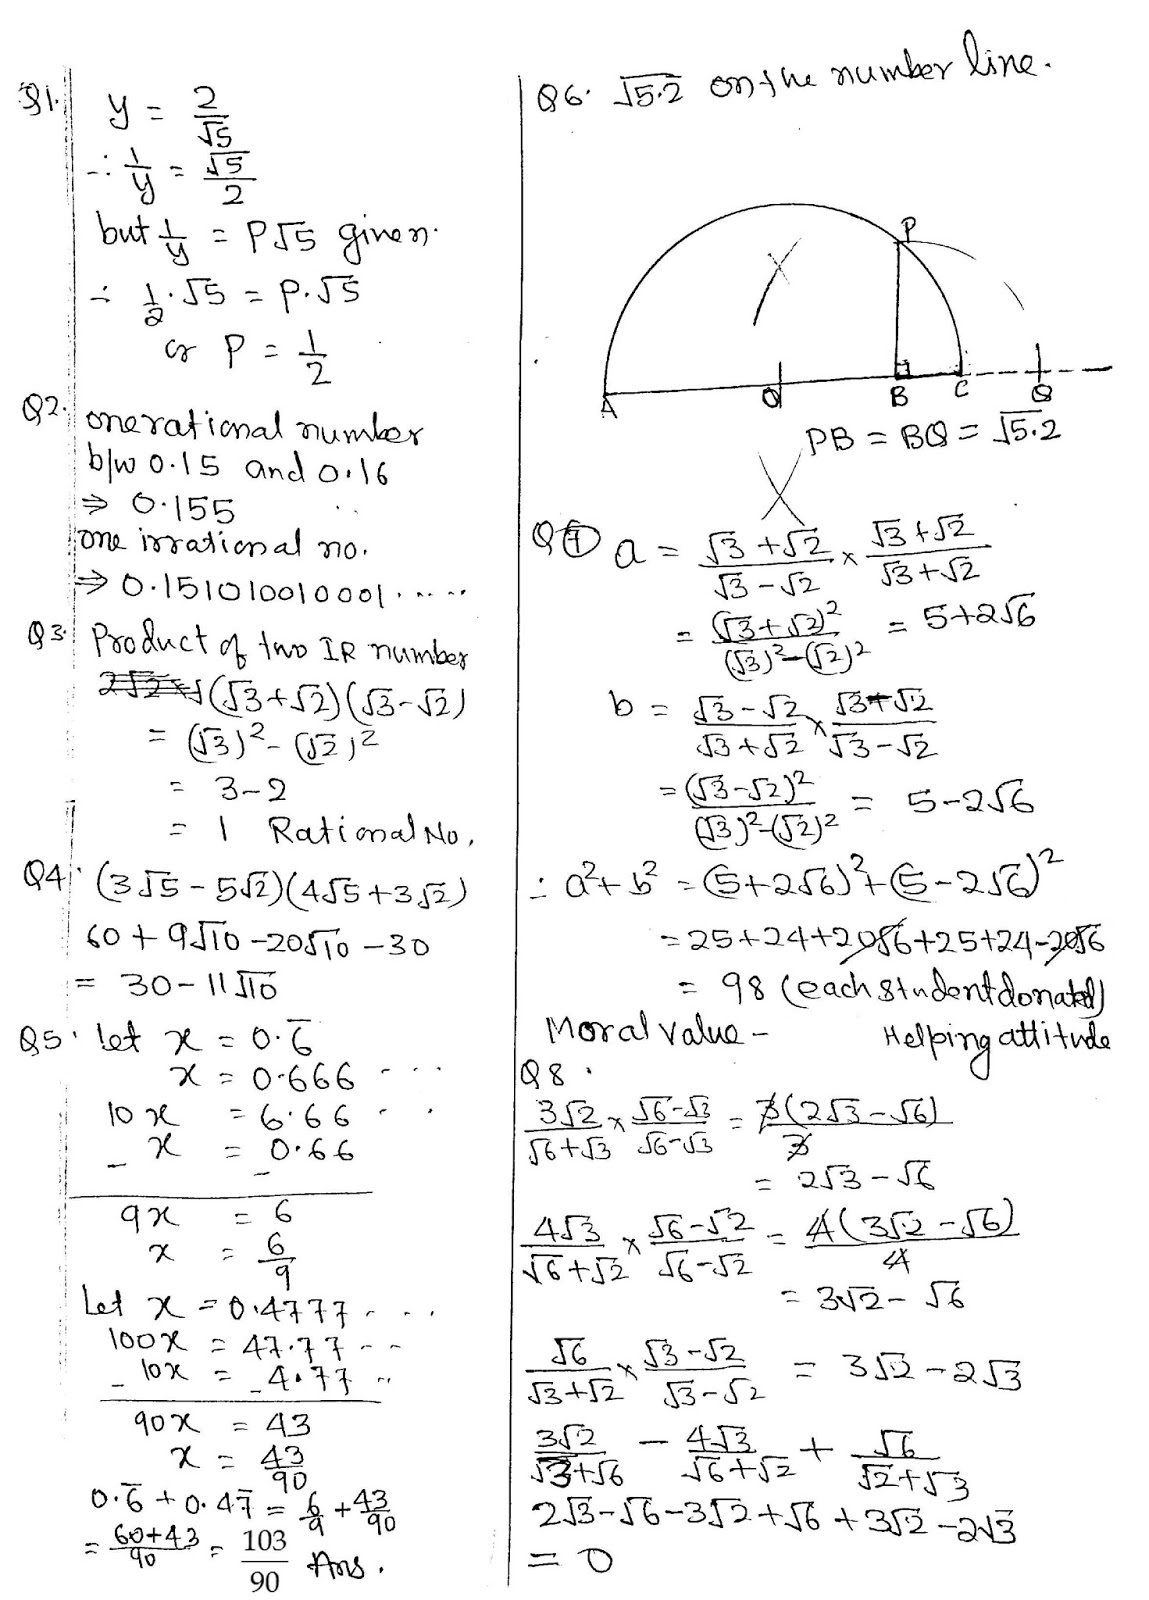 Q1. y = 2/√5
∴ 1/y = √5/2
but 1/y = P√5 given.
∴ 1/2 · √5 = P.√5
or P = 1/2
Q2. one rational number
b/w 0.15 and 0.16
⇒ 0.155
one irrational no.
⇒ 0.151010010001.....
Q3. Product of two IR number
(√3+√2)(√3-√2)
= (√3)² - (√2)²
= 3-2
= 1 Rational No.
Q4. (3√5 - 5√2)(4√5+3√2)
60 + 9√10 - 20√10 - 30
= 30 - 11√10
Q5. Let x = 0.6̅
x = 0.666 ...
10x = 6.66 ..
- x = 0.66
-
9x = 6
x = 6/9
Let x = 0.4777 ....
100x = 47.77 ...
- 10x = - 4.77 ..
90x = 43
x = 43/90
0.6̅ + 0.47̅ = 6/9 + 43/90
= 60+43/90 = 103/90 Ans.
Q6. √5.2 on the number line.
P
A O B C Q
PB = BQ = √5.2
Q7 a = √3+√2/√3-√2 × √3+√2/√3+√2
= (√3+√2)²/(√3)²-(√2)² = 5+2√6
b = √3-√2/√3+√2 × √3-√2/√3-√2
= (√3-√2)²/(√3)²-(√2)² = 5-2√6
∴ a²+b² = (5+2√6)²+(5-2√6)²
= 25+24+20√6+25+24-20√6
= 98 (each student donated)
Moral value - Helping attitude
Q8.
3√2/√6+√3 × √6-√3/√6-√3 = 3(2√3-√6)/3
= 2√3-√6
4√3/√6+√2 × √6-√2/√6-√2 = 4(3√2-√6)/4
= 3√2-√6
√6/√3+√2 × √3-√2/√3-√2 = 3√2-2√3
3√2/√3+√6 - 4√3/√6+√2 + √6/√2+√3
2√3-√6-3√2+√6+3√2-2√3
= 0